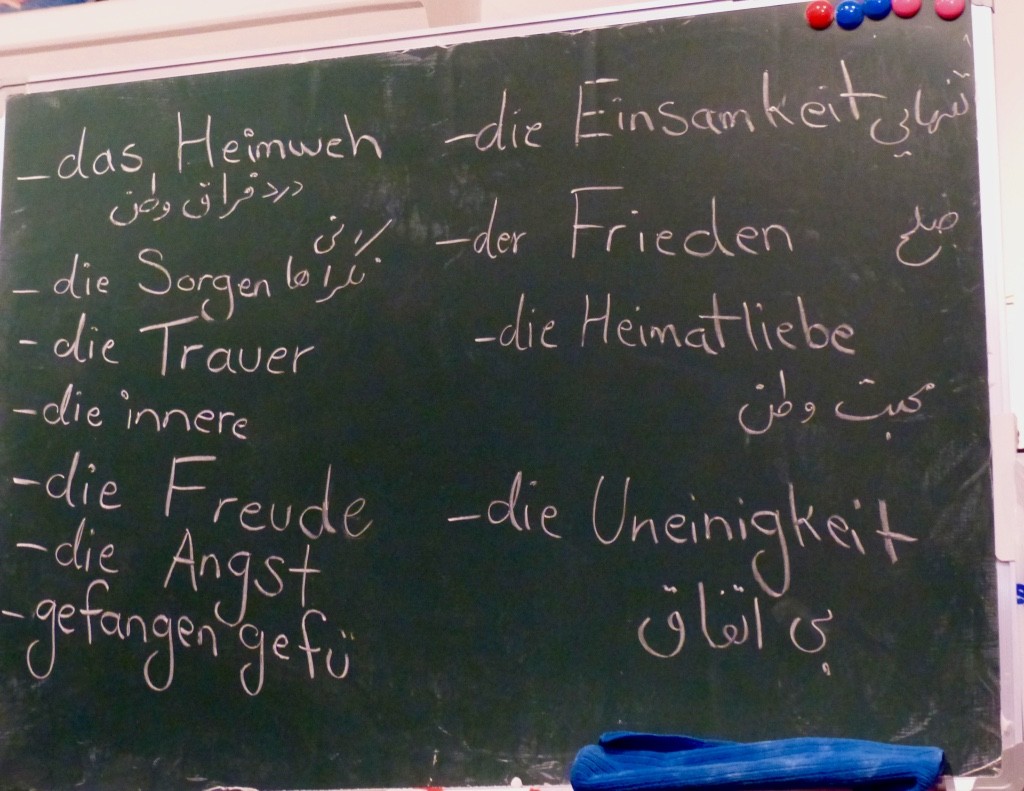 - das Heimweh
درد فراق وطن
- die Sorgen نگرانی ها
- die Trauer
- die innere
- die Freude
- die Angst
- gefangen gefü
- die Einsamkeit تنهایی
- der Frieden صلح
- die Heimatliebe
محبت وطن
- die Uneinigkeit
بی اتفاق